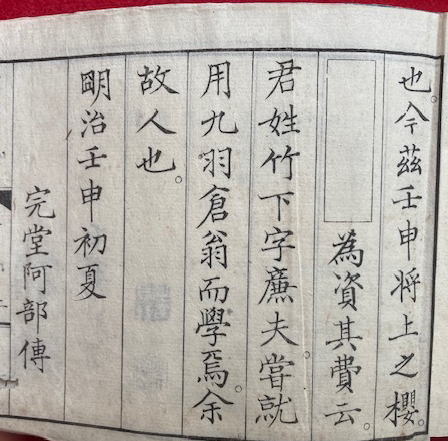 也今茲壬申将上之櫻。
為資其費云。
君姓竹下字廉夫。嘗就
用九羽倉翁而學焉。余
故人也。
明治壬申初夏
完堂阿部傳